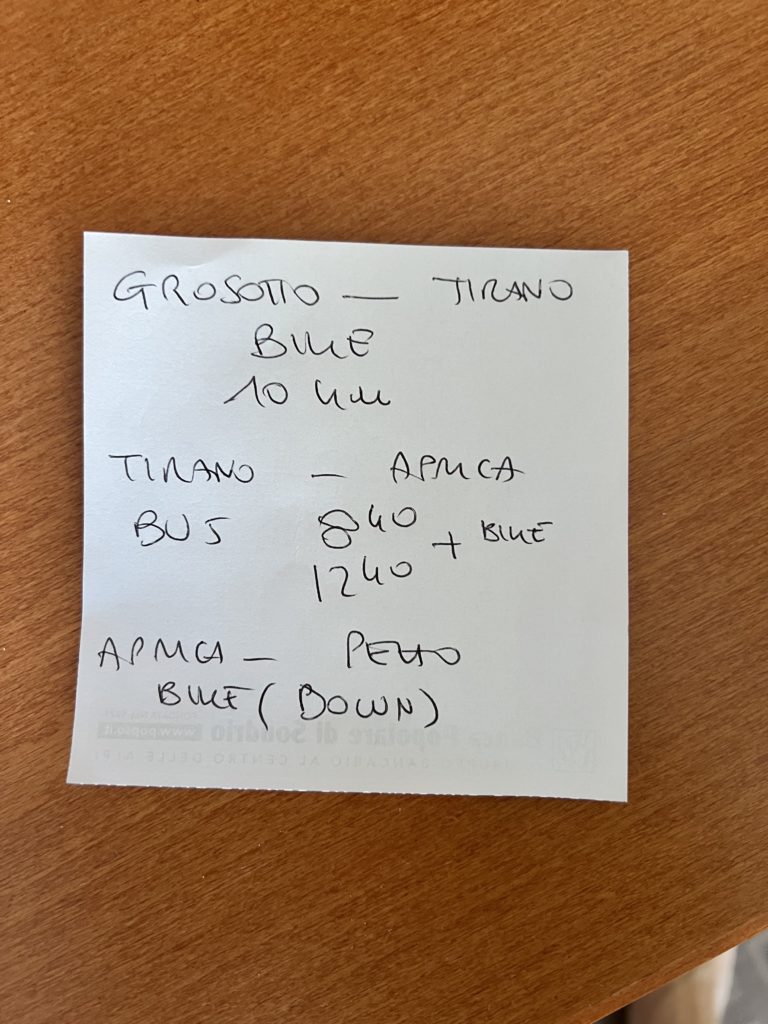 GROSOTTO — TIRANO
BIKE
10 km
TIRANO — APRICA
BUS 8 40 + BIKE
12 40
APRICA —
BIKE (DOWN)
Banca Popolare di Sondrio www.popso.it
GRUPPO BANCARIO AL CENTRO DELLE ALPI